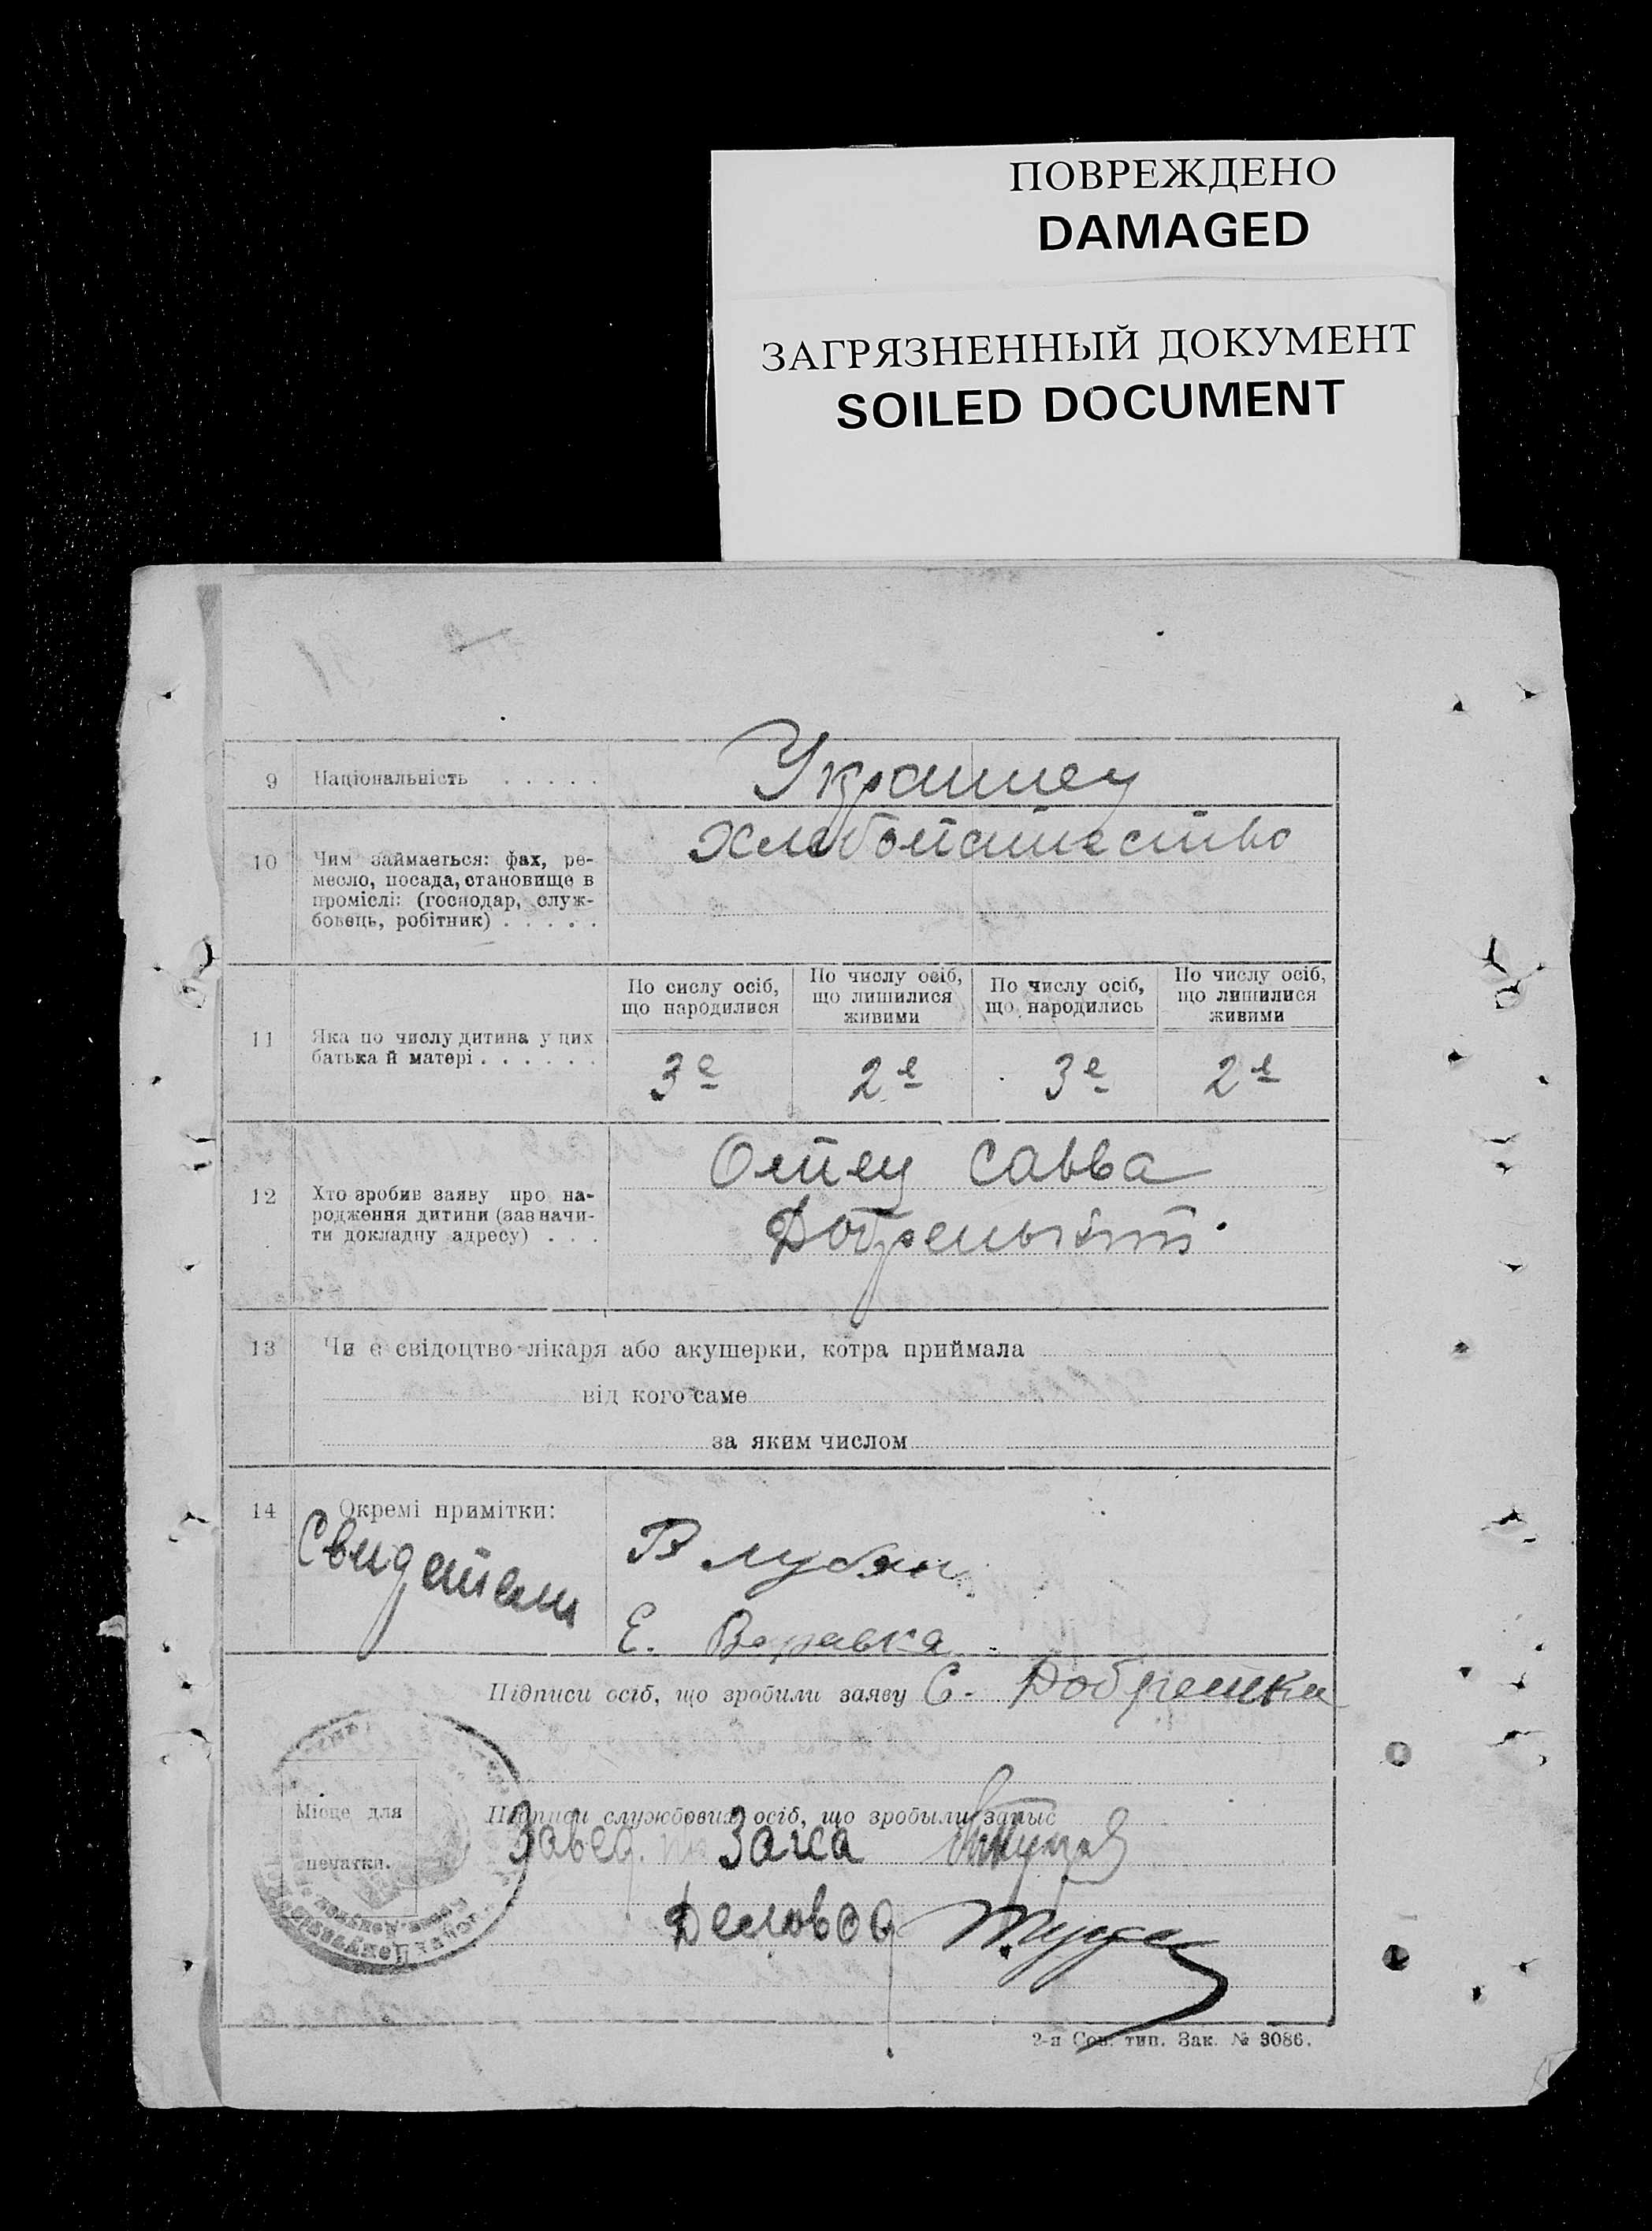 ПОВРЕЖДЕНО
DAMAGED
ЗАГРЯЗНЕННЫЙ ДОКУМЕНТ
SOILED DOCUMENT
9 Національність . . . . . Украинец
10 Чим займається: фах, ре-
месло, посада, становище в
проміслі: (господар, служ-
бовець, робітник) . . . . .
Хлебопашество
11 Яка по числу дитина у цих
батька й матері . . . . . .
По сислу осіб,
що народилися
По числу осіб,
що лишилися
живими
По числу осіб,
що народились
По числу осіб,
що лишилися
живими
3е 2е 3е 2е
12 Хто зробив заяву про на-
родження дитини (зазначи-
ти докладну адресу) . . .
Отец Савва
13 Чи є свідоцтво лікаря або акушерки, котра приймала
від кого саме
за яким числом
14 Окремі примітки:
Свидетели
Е.
Підписи осіб, що зробили заяву С.
Місце для
печатки.
Підписи службових осіб, що зробыли запыс
Завед. Загса
Деловод
2-я Сов. тип. Зак. № 3086.